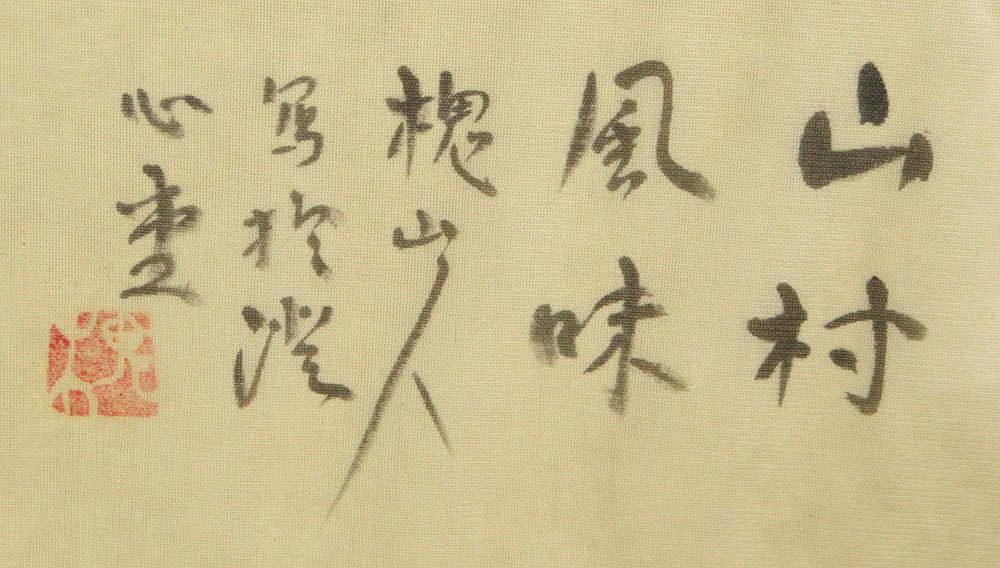 山村
風味
槐山人
写於澄
心堂